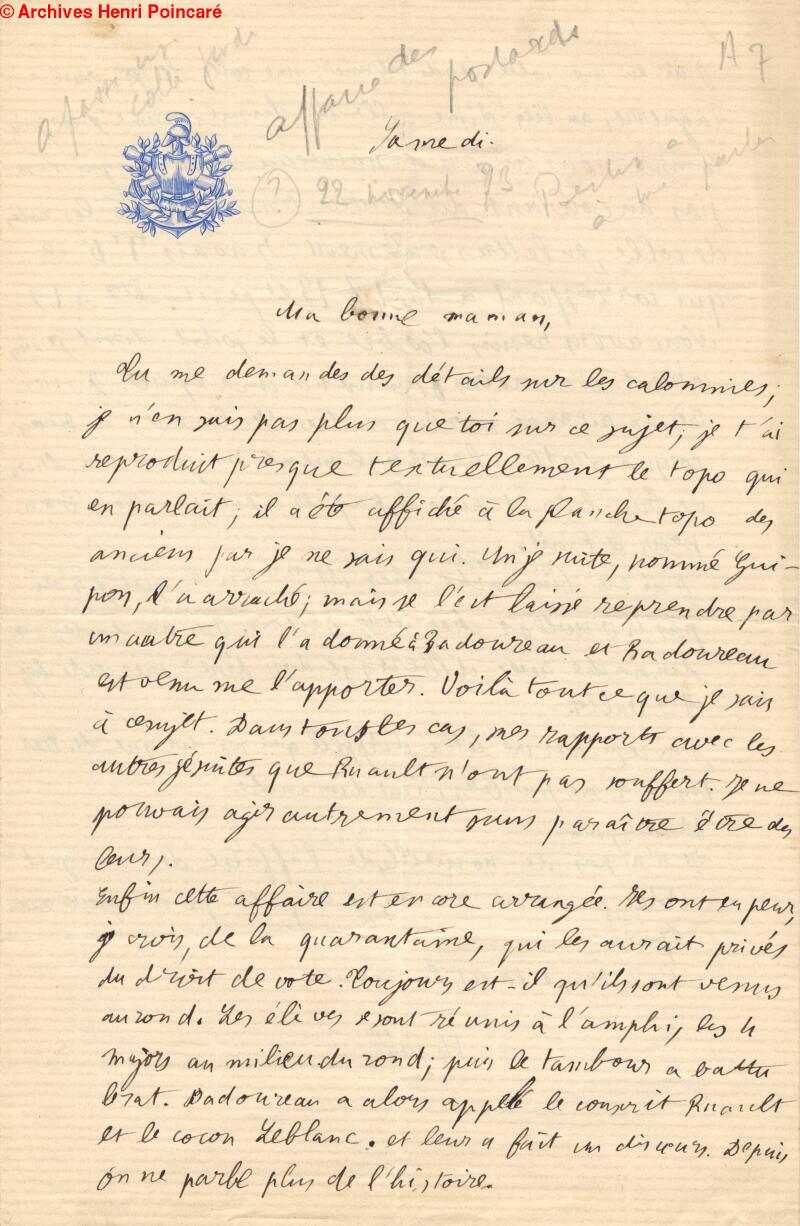 © Archives Henri Poincaré
affaire des postards
A 7
Samedi.
(?) 22 novembre 73
à me parler
Ma bonne maman,
Tu me demandes des détails sur les calomnies;
je n'en sais pas plus que toi sur ce sujet; je t'ai
reproduit presque textuellement le topo qui
en parlait; il a été affiché à la planche topo des
anciens par je ne sais qui. Un jésuite, nommé Gui-
pon, l'a arraché; mais se l'est laissé reprendre par
un autre qui l'a donné à Badoureau et Badoureau
est venu me l'apporter. Voilà tout ce que je sais
à ce sujet. Dans tous les cas, mes rapports avec les
autres jésuites que Ruault n'ont pas souffert. Je ne
pouvais agir autrement sans paraître être des
leurs.
Enfin cette affaire est encore arrangée. Ils ont eu peur,
je crois, de la quarantaine, qui les aurait privés
du droit de vote. Toujours est-il qu'ils sont venus
au rond. Les élèves se sont réunis à l'amphi, les 4
majors au milieu du rond; puis le tambour a battu
le rat. Badoureau a alors appelé le conscrit Ruault
et le cocon Leblanc. et leur a fait un discours. Depuis
on ne parle plus de l'histoire.